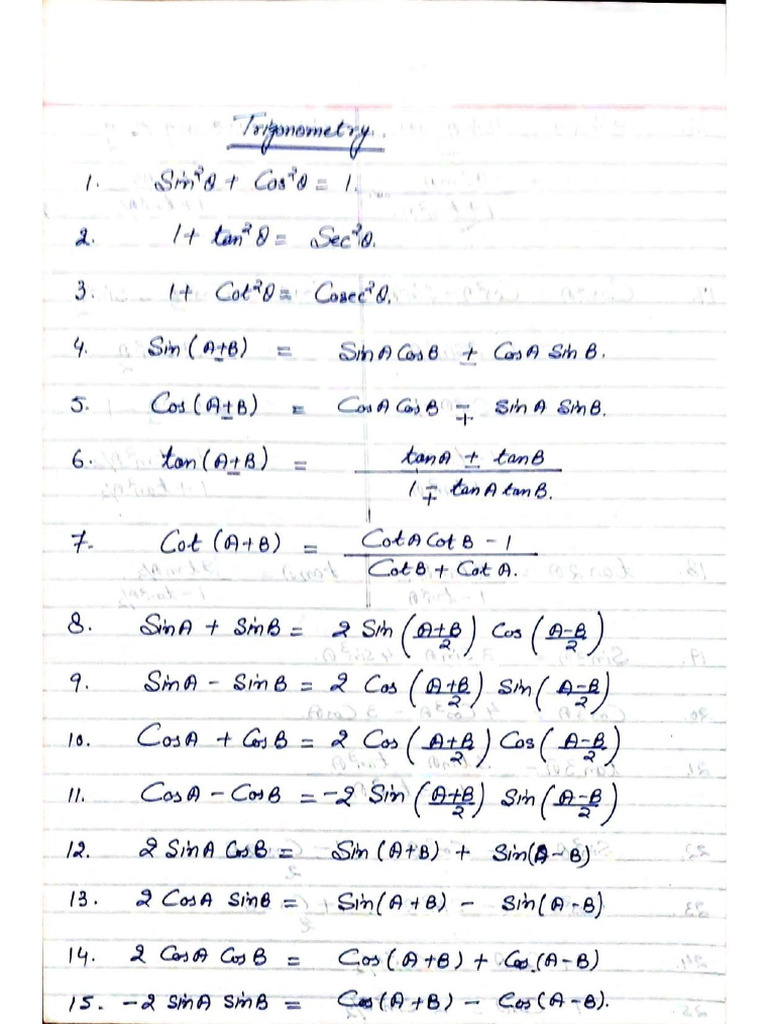 Trigonometry.
1. Sin²θ + Cos²θ = 1.
2. 1 + tan²θ = Sec²θ.
3. 1 + Cot²θ = Cosec²θ.
4. Sin (A±B) = Sin A Cos B ± Cos A Sin B.
5. Cos (A±B) = Cos A Cos B ∓ Sin A Sin B.
6. tan (A±B) = tan A ± tan B
1 ∓ tan A tan B.
7. Cot (A+B) = Cot A Cot B - 1
Cot B + Cot A.
8. Sin A + Sin B = 2 Sin (A+B/2) Cos (A-B/2)
9. Sin A - Sin B = 2 Cos (A+B/2) Sin (A-B/2)
10. Cos A + Cos B = 2 Cos (A+B/2) Cos (A-B/2)
11. Cos A - Cos B = -2 Sin (A+B/2) Sin (A-B/2)
12. 2 Sin A Cos B = Sin (A+B) + Sin (A-B)
13. 2 Cos A Sin B = Sin (A+B) - Sin (A-B)
14. 2 Cos A Cos B = Cos (A+B) + Cos (A-B)
15. -2 Sin A Sin B = Cos (A+B) - Cos (A-B).